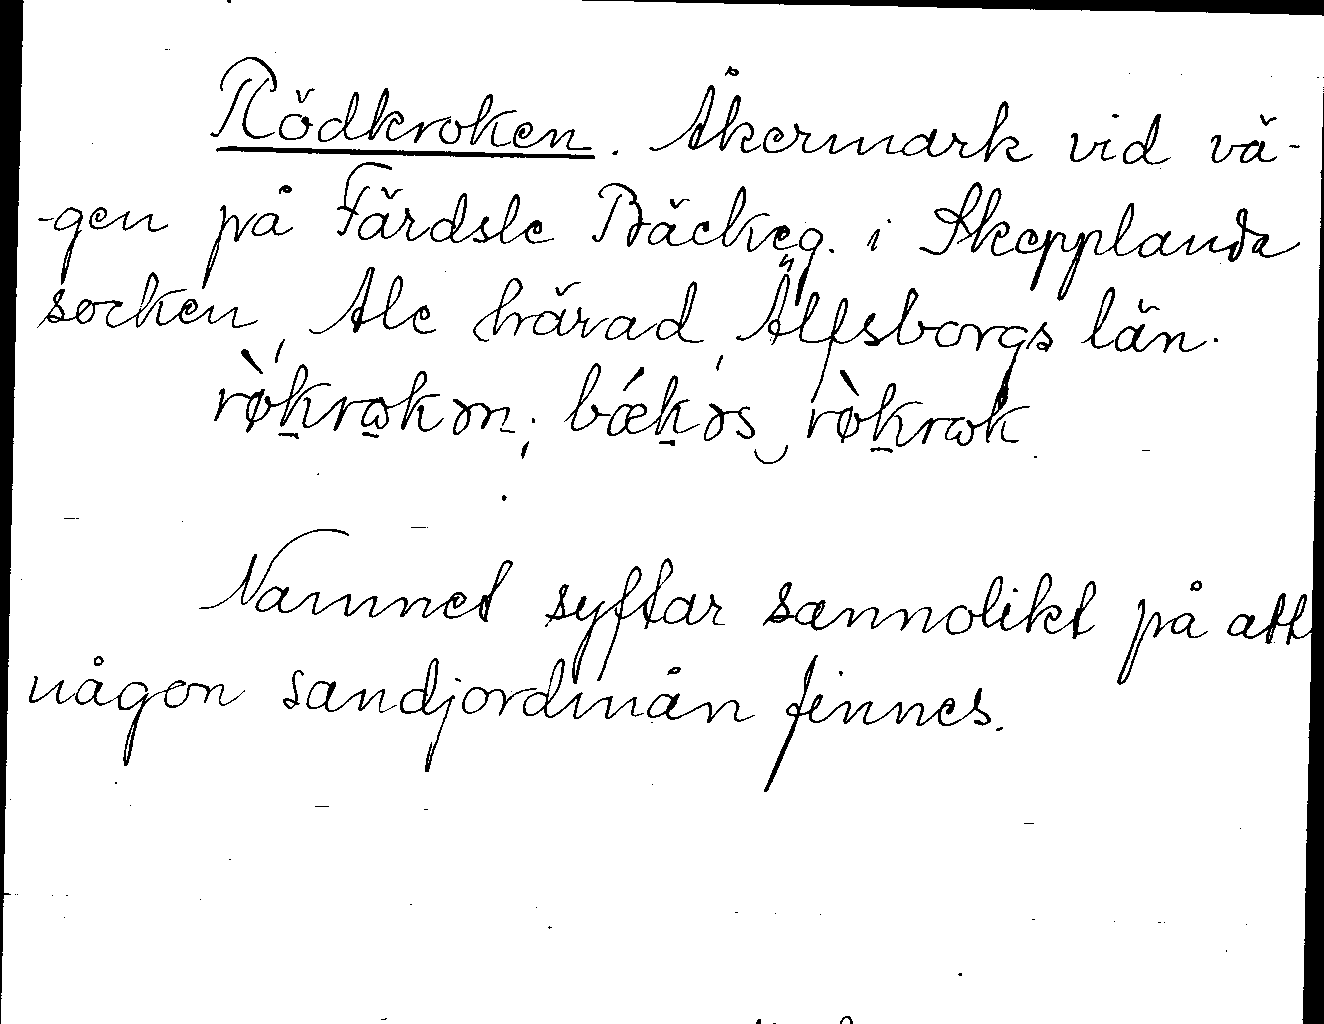 Rödkroken. Åkermark vid vä-
-gen på Färdsle Bäckeg. i Skepplanda
socken, Ale härad, Älfsborgs län.
rø̀ḵrɷ̱kən; bǽḵəs‿rø̀ḵrɷk
Namnet syftar sannolikt på att
någon sandjordmån finnes.